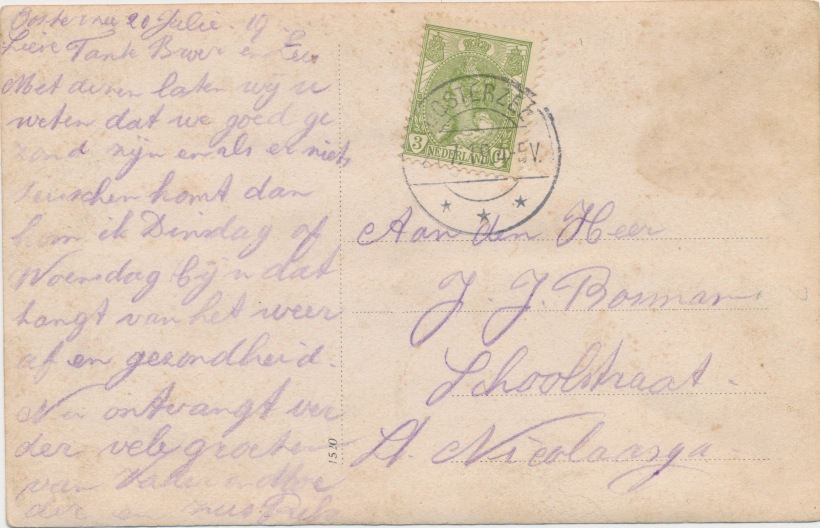 Oosterzee 20 Julie. 19
Lieve Tante Broer en
Met dezen laten wij u
weten dat we goed ge
zond zijn en als er niets
teuschen komt dan
kom ik Dinsdag of
Woensdag bij u dat
hangt van het weer
af en gezondheid.
Nu ontvangt ver
der vele groeten
van Vader en Moe
der en
3 NEDERLAND ct
OOSTERZEE
4-5V.
Aan den Heer
J. J. Bosman
Schoolstraat -
St. Nicolaasga -
1520